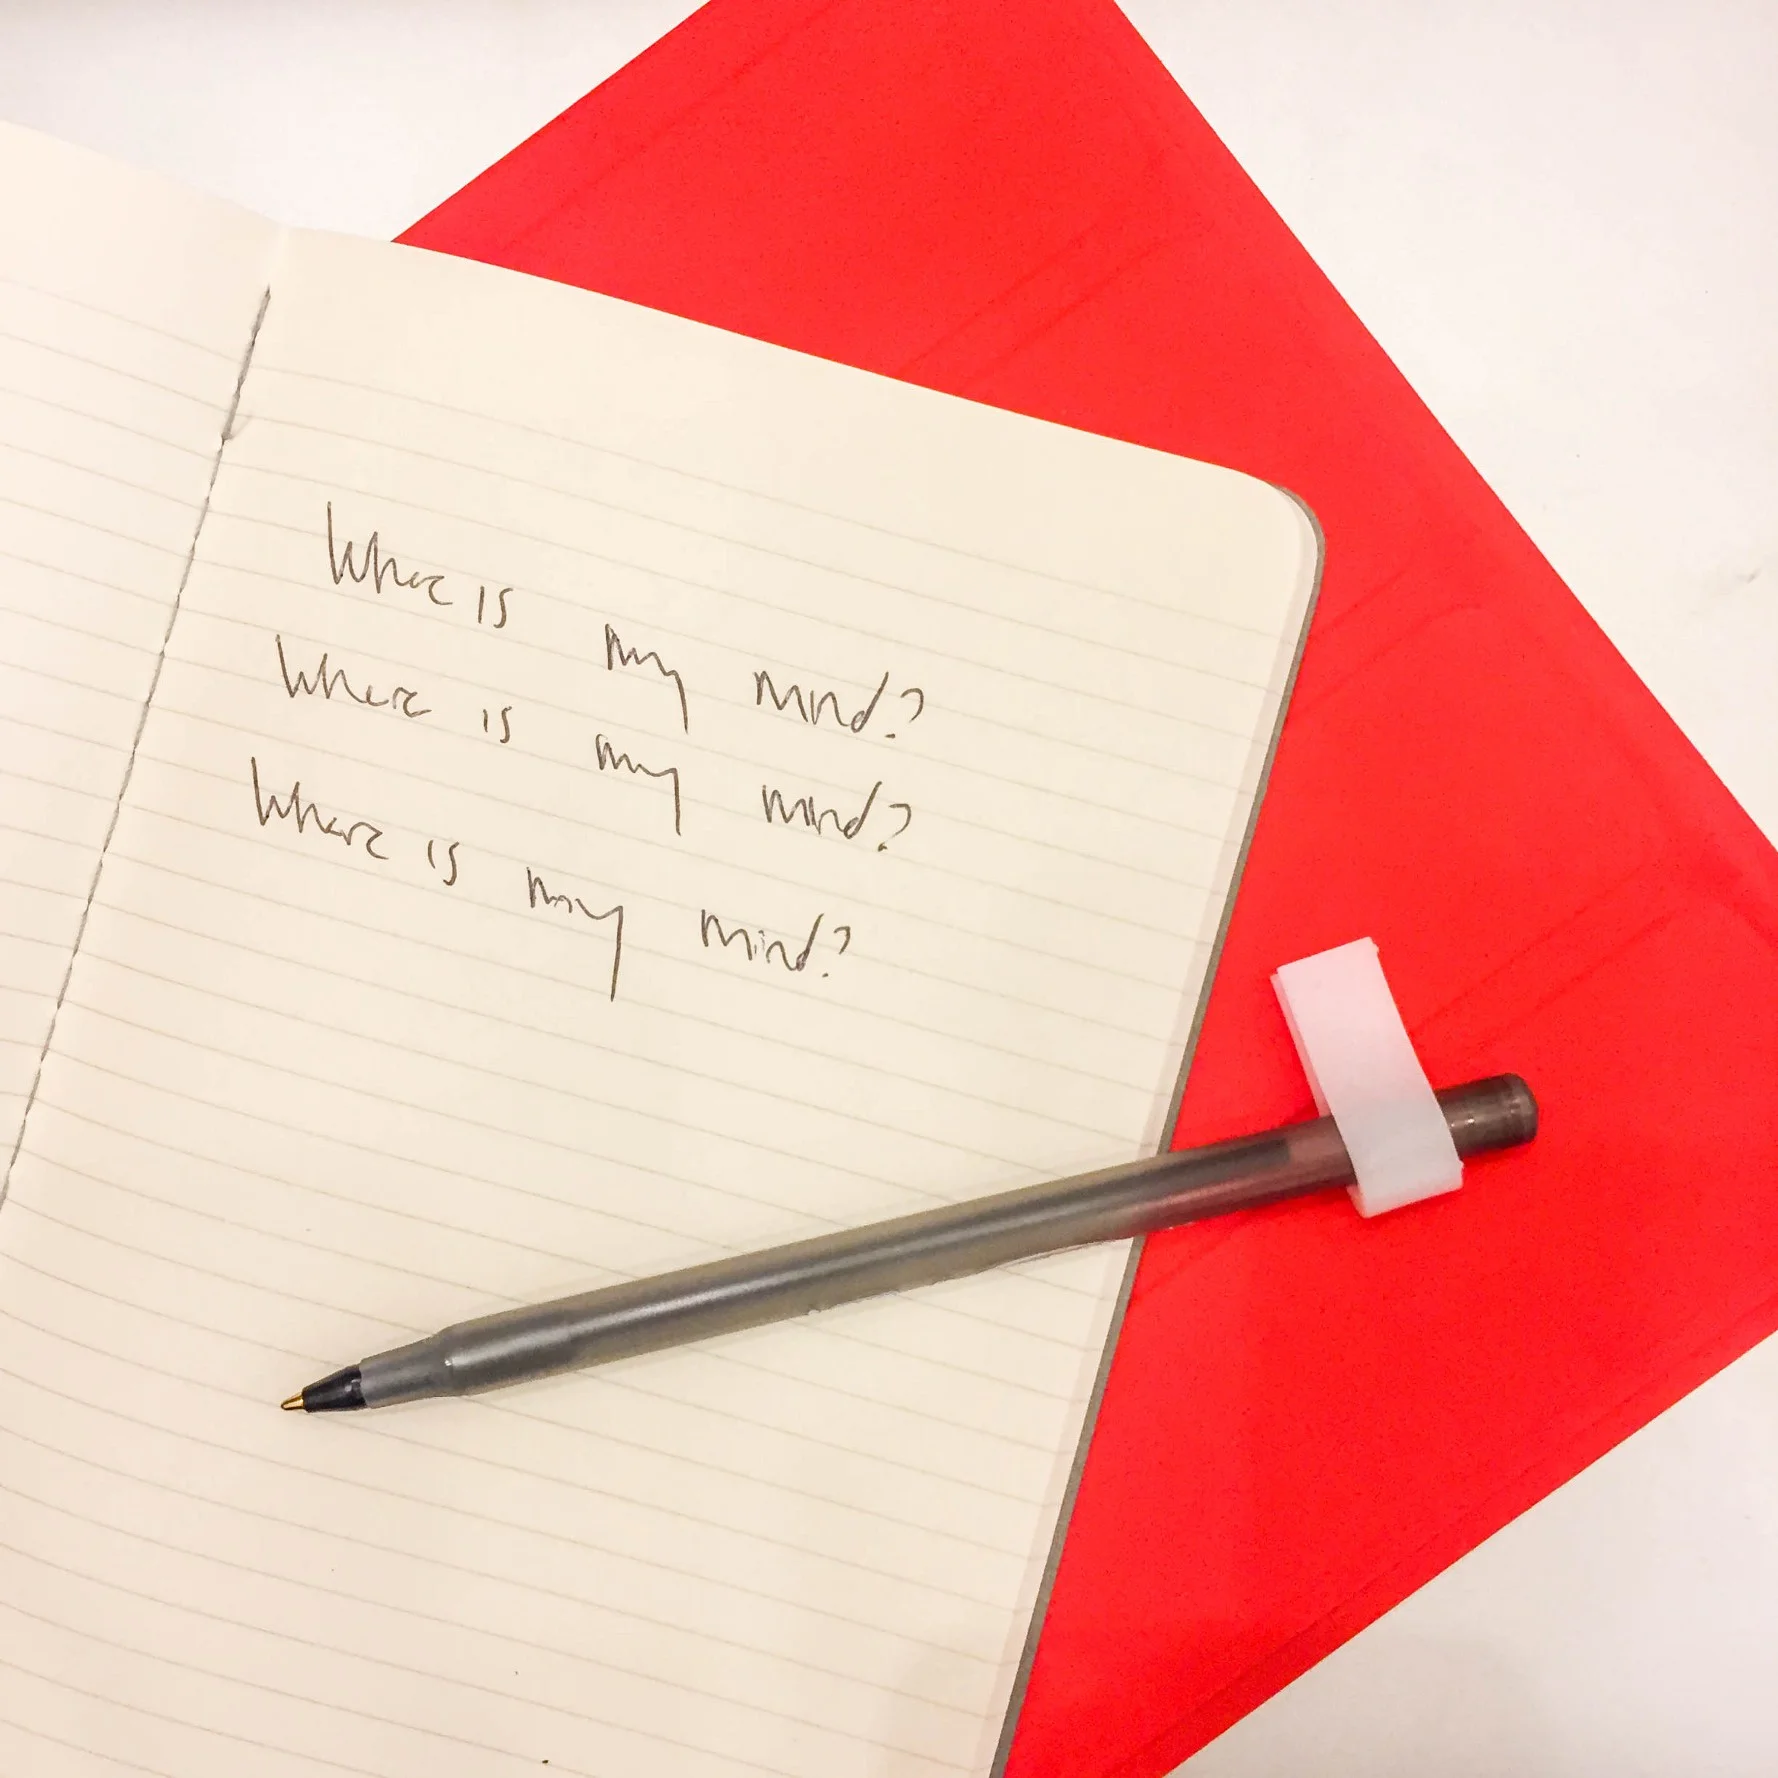 Where is my mind?
Where is my mind?
Where is my mind?